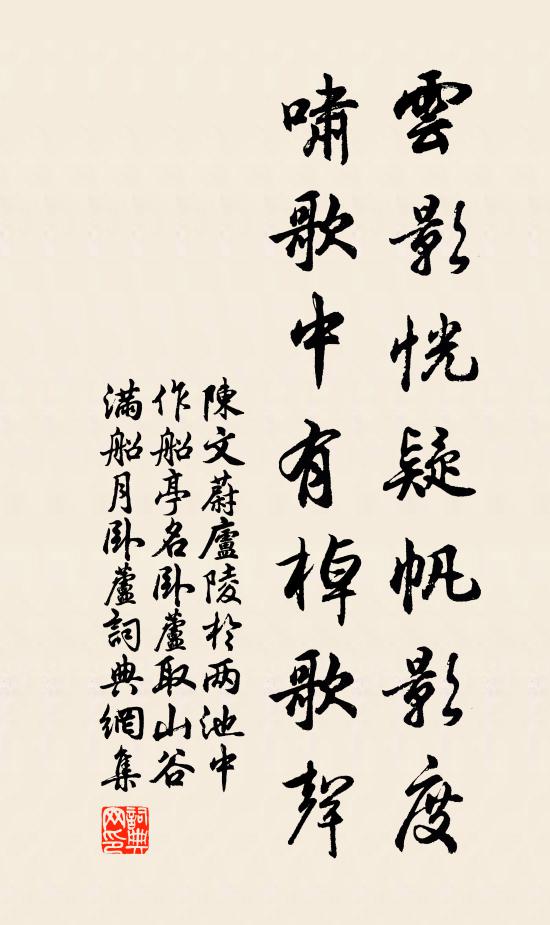 雲影恍疑帆影度
嘯歌中有棹歌聲
陳文蔚廬陵於两池中
作船亭名卧蘆取山谷
滿船月卧蘆詞典網集
詞典网印